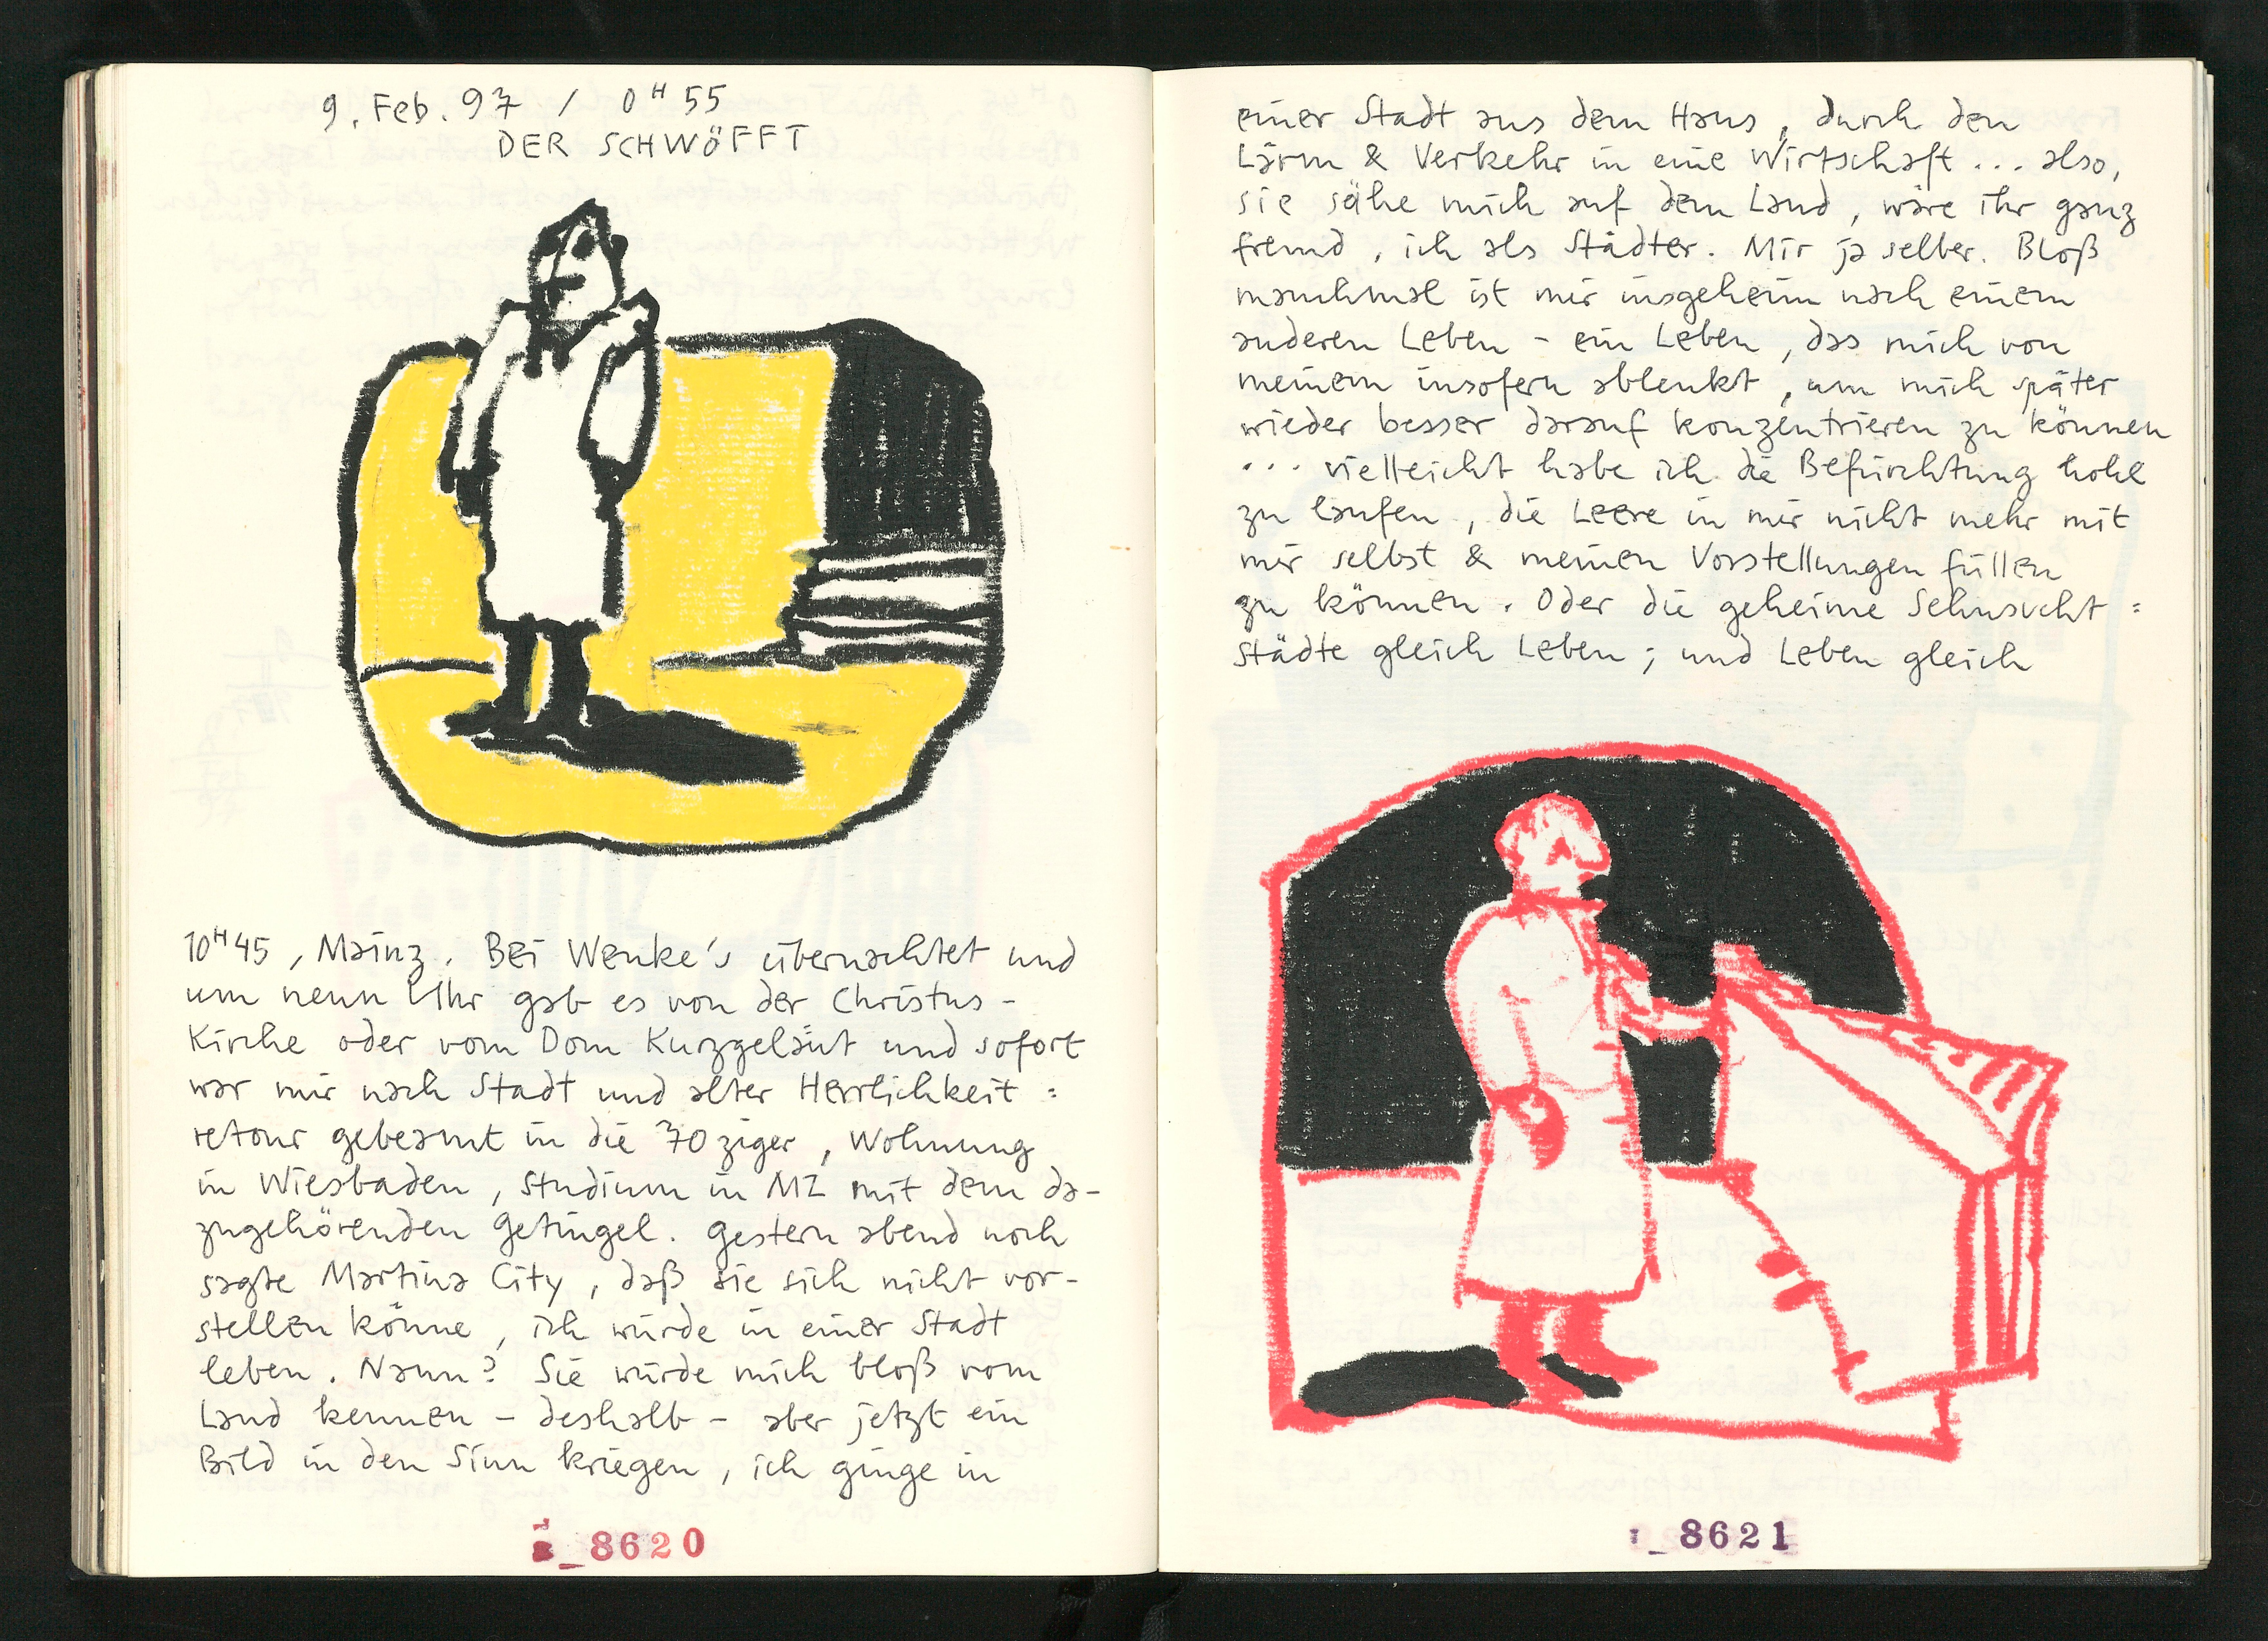 9. Feb. 97 / 0H55
DER SCHWÖFFT
10H45, Mainz. Bei Wenke's übernachtet und
um neun Uhr gab es von der Christus-
Kirche oder vom Dom Kurzgeläut und sofort
war mir nach Stadt und alter Herrlichkeit :
retour gebeamt in die 70ziger, Wohnung
in Wiesbaden, Studium in MZ mit dem da-
zugehörenden Getingel. Gestern abend noch
sagte Martina City, daß sie sich nicht vor-
stellen könne, ich würde in einer Stadt
leben. Nanu? Sie würde mich bloß vom
Land kennen - deshalb - aber jetzt ein
Bild in den Sinn kriegen, ich ginge in
8620
einer Stadt aus dem Haus, durch den
Lärm & Verkehr in eine Wirtschaft ... also,
sie sähe mich auf dem Land, wäre ihr ganz
fremd, ich als Städter. Mir ja selber. Bloß
manchmal ist mir insgeheim nach einem
anderen Leben - ein Leben, das mich von
meinem insofern ablenkt, um mich später
wieder besser darauf konzentrieren zu können
... vielleicht habe ich die Befürchtung hohl
zu laufen, die Leere in mir nicht mehr mit
mir selbst & meinen Vorstellungen füllen
zu können. Oder die geheime Sehnsucht :
Städte gleich Leben; und Leben gleich
8621